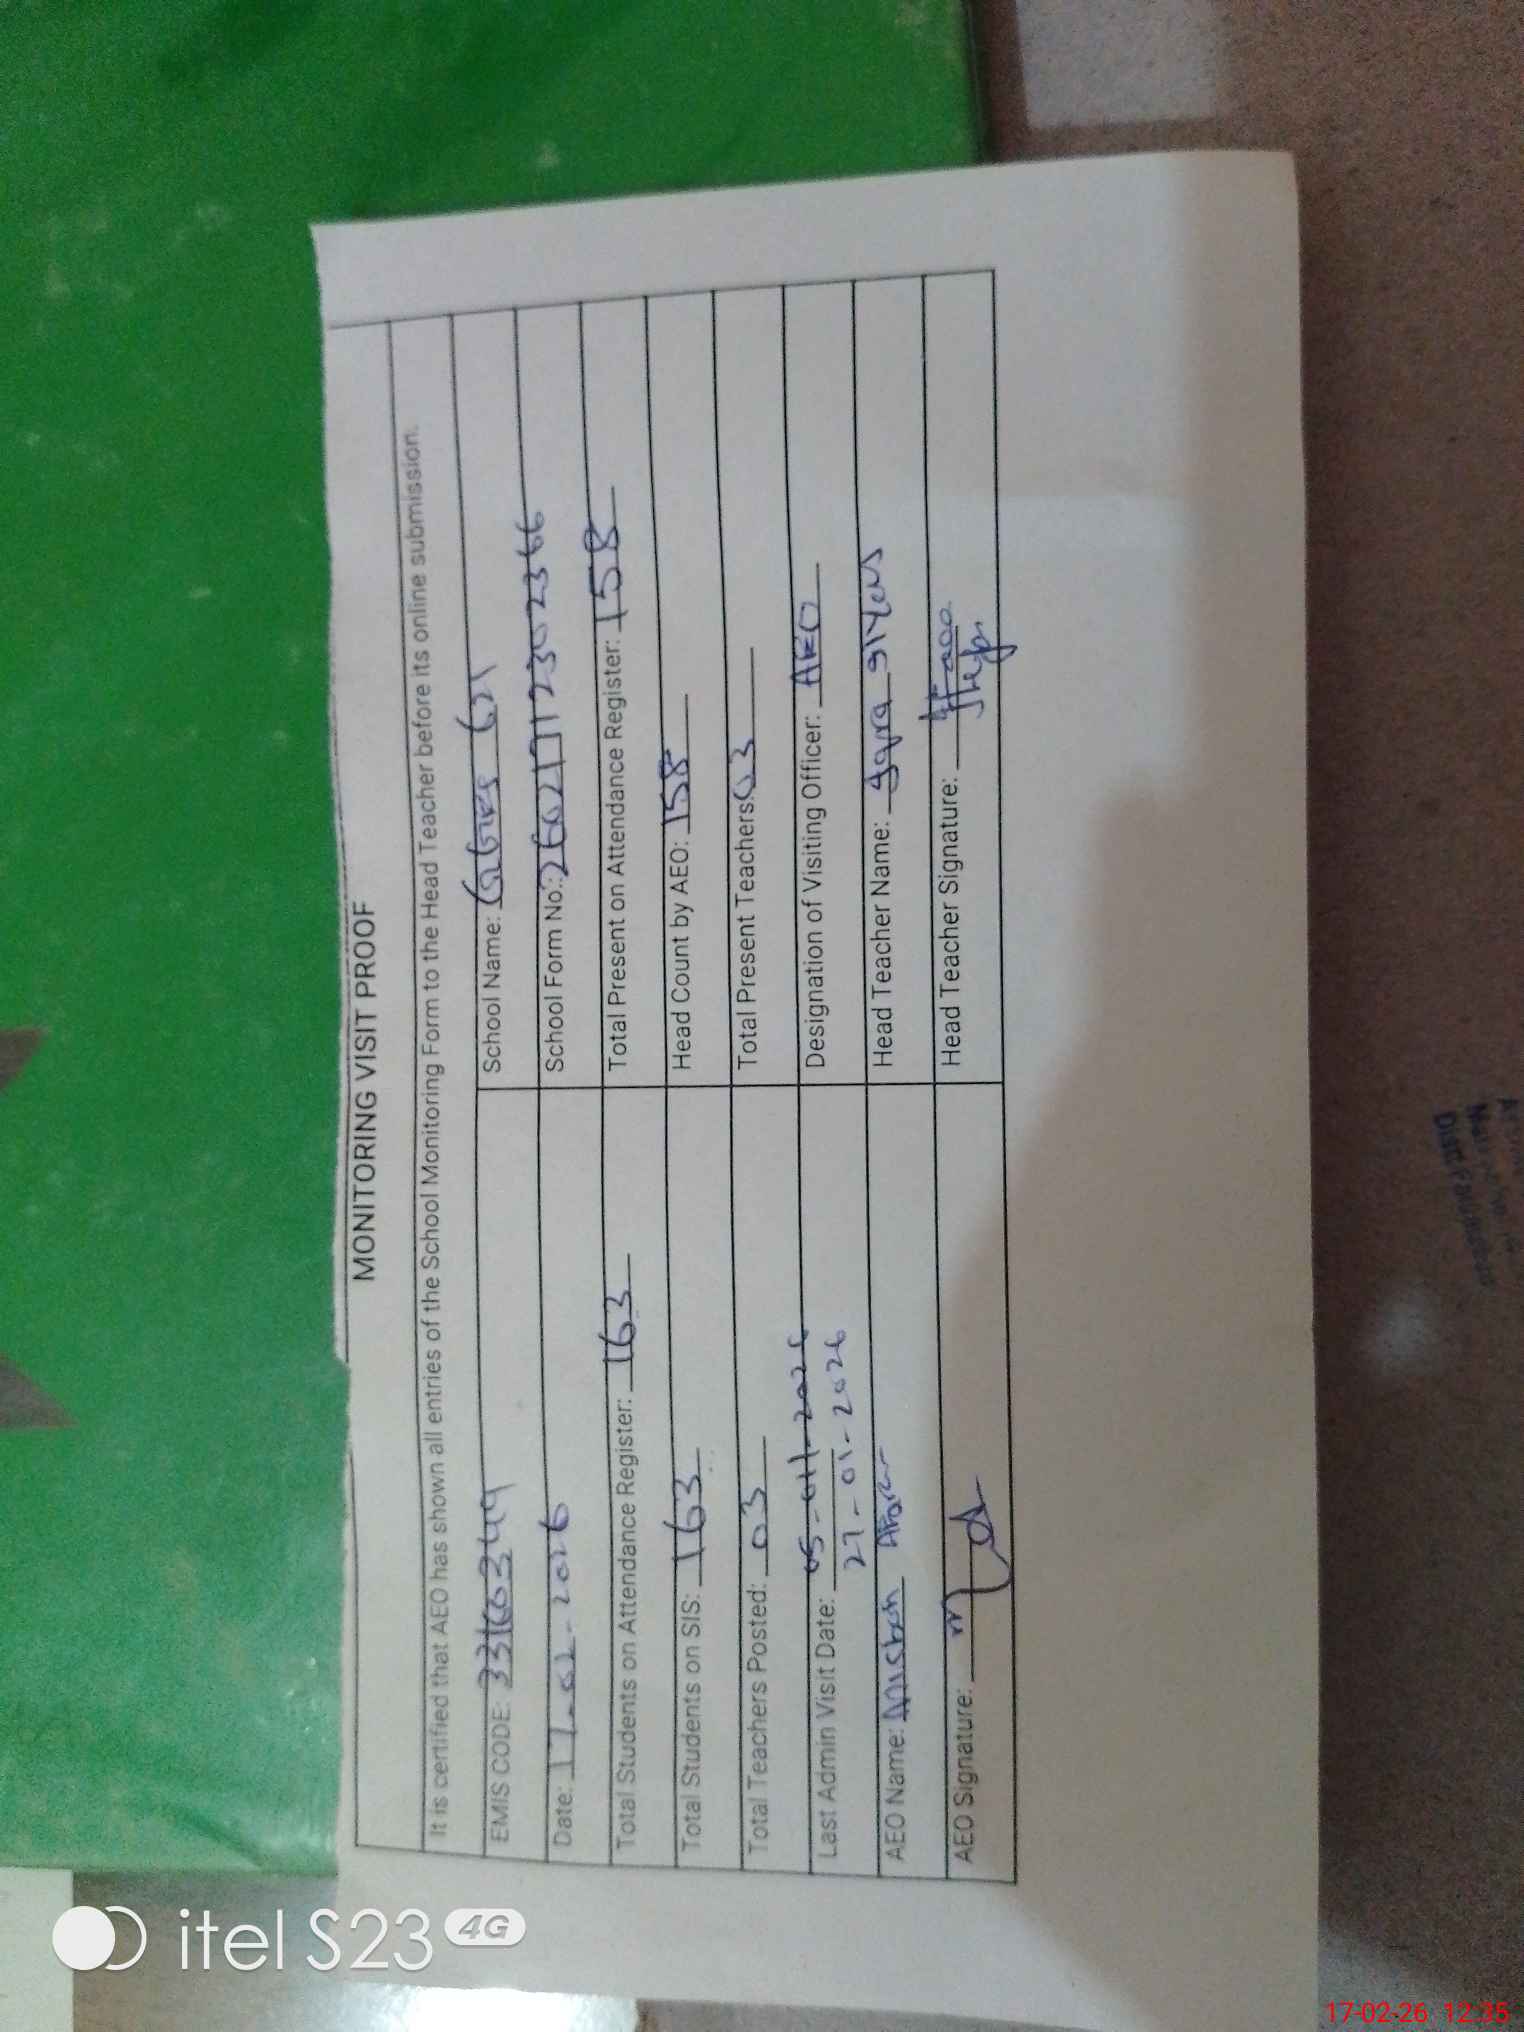 MONITORING VISIT PROOF
It is certified that AEO has shown all entries of the School Monitoring Form to the Head Teacher before its online submission.
EMIS CODE: 33160349 School Name:
Date: 17-02-2026 School Form No.:
Total Students on Attendance Register: 163 Total Present on Attendance Register: 158
Total Students on SIS: 163 Head Count by AEO: 158
Total Teachers Posted: 03 Total Present Teachers: 03
Last Admin Visit Date: 05-01-2026 Designation of Visiting Officer: AEO
27-01-2026
AEO Name: Misbah Head Teacher Name:
AEO Signature: Head Teacher Signature:
itel S23 4G
17-02-26 12:35